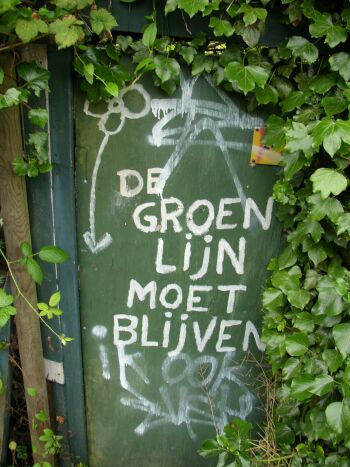 DE
GROEN
LIJN
MOET
BLIJVEN
iK OOK